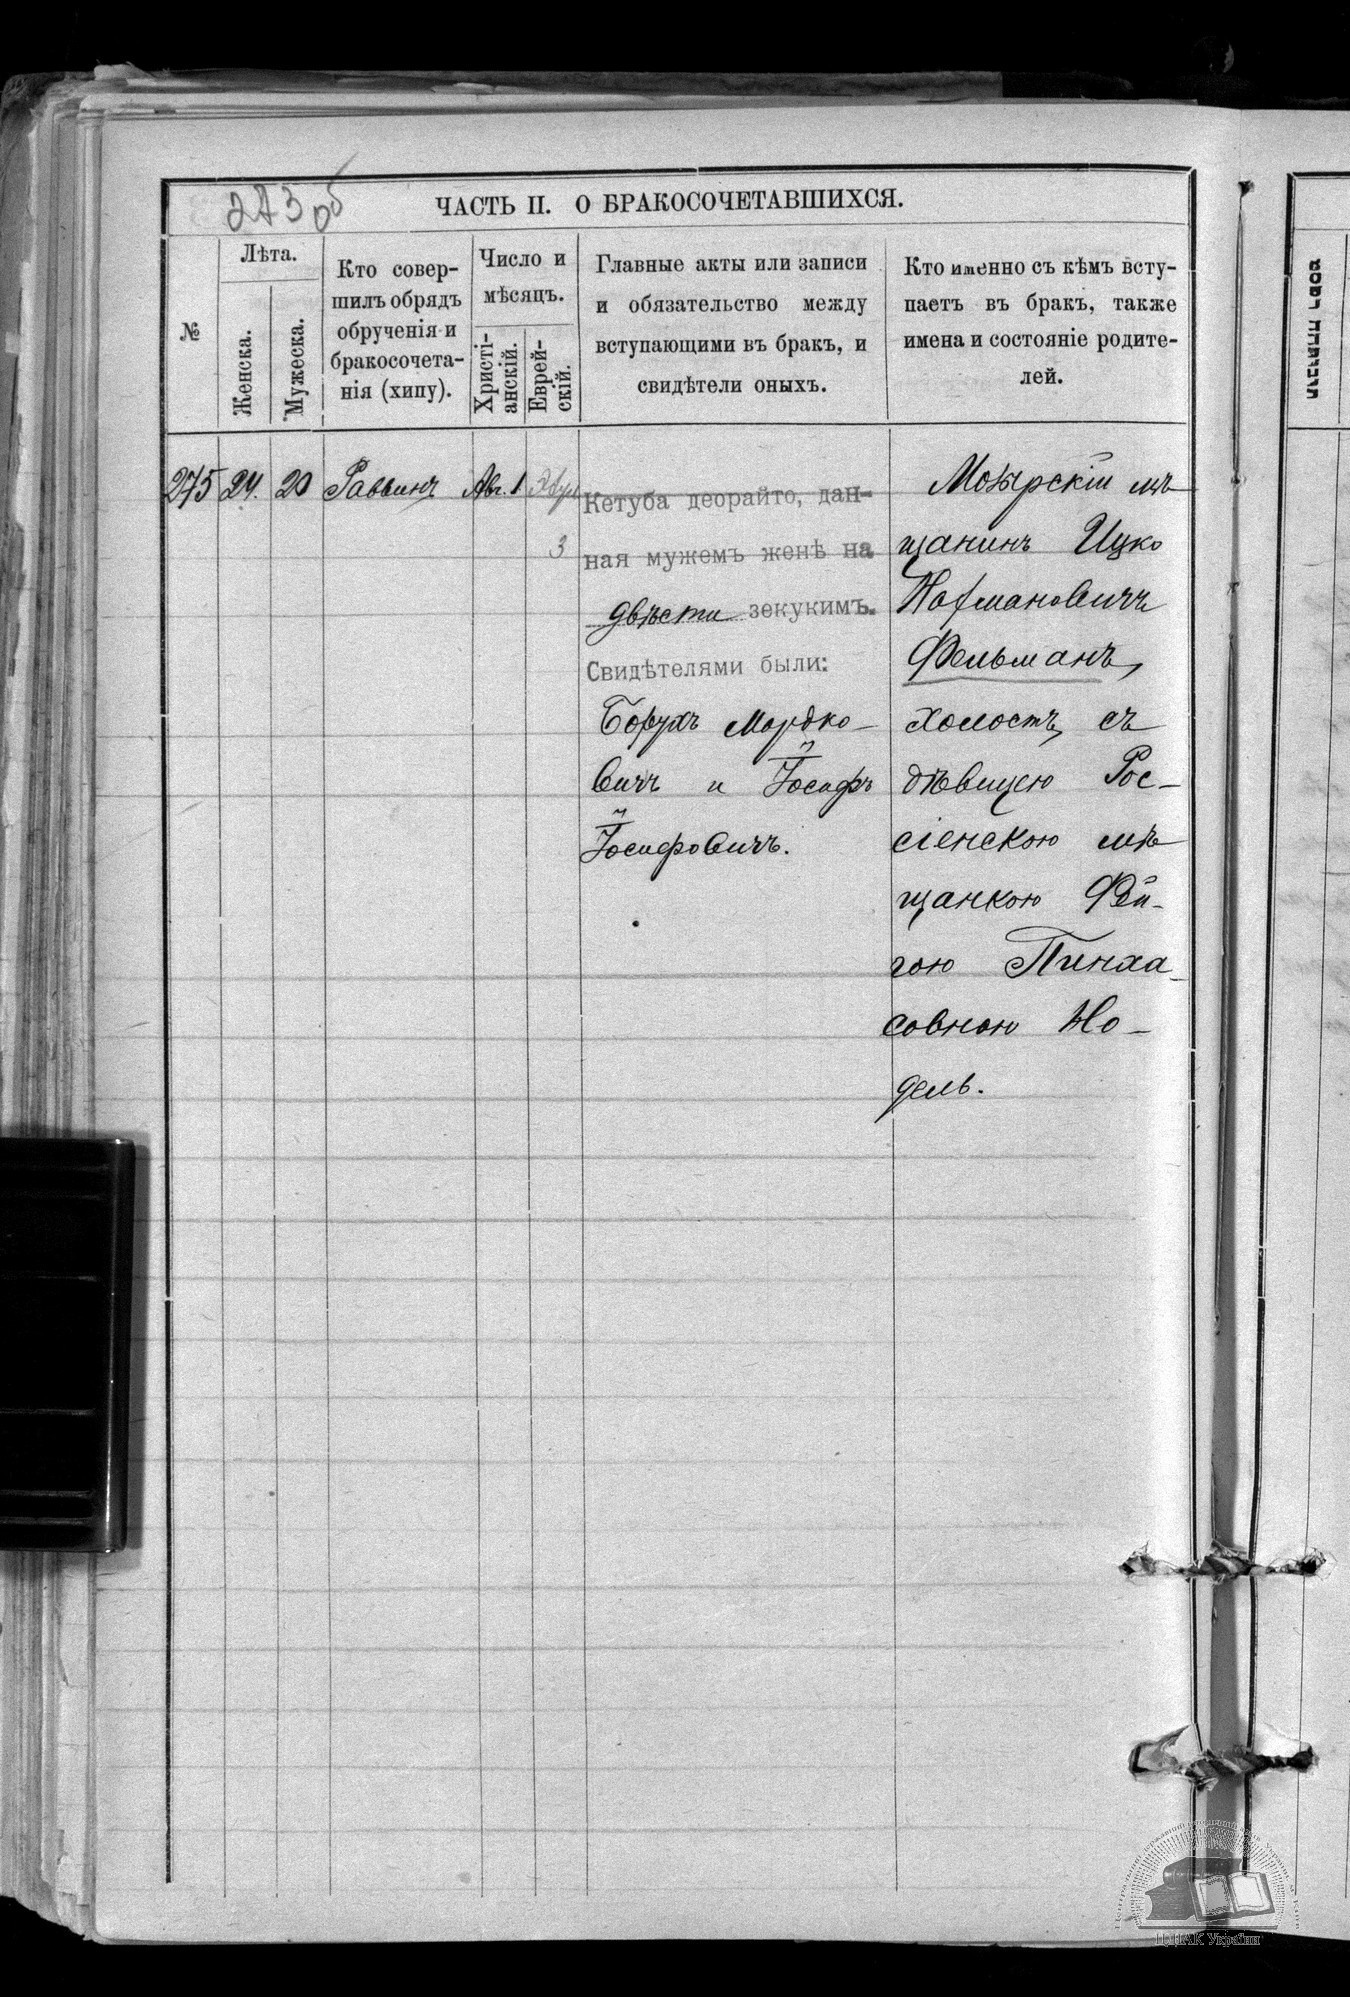 273 об
ЧАСТЬ II. О БРАКОСОЧЕТАВШИХСЯ.
№
Лѣта.
Женска.
Мужеска.
Кто совер-
шилъ обрядъ
обрученія и
бракосочета-
нія (хипу).
Число и
мѣсяцъ.
Христі-
анскій.
Еврей-
скій.
Главные акты или записи
и обязательство между
вступающими въ бракъ, и
свидѣтели оныхъ.
Кто именно съ кѣмъ всту-
паетъ въ бракъ, также
имена и состояніе родите-
лей.
275 24. 20 Раввинъ Авг. 1
3
Кетуба деорайто, дан-
ная мужемъ женѣ на
двѣсти зекукимъ.
Свидѣтелями были:
Борухъ Мордко-
вичъ и Іосифъ
Іосифовичъ.
Мозырскій мѣ
щанинъ Ицко
Нохмановичъ
Фельманъ,
холостъ, съ
дѣвицею Рос-
сіенскою мѣ
щанкою Фей-
гою Пинха-
совною Но-
дель.
ЦДІАК України